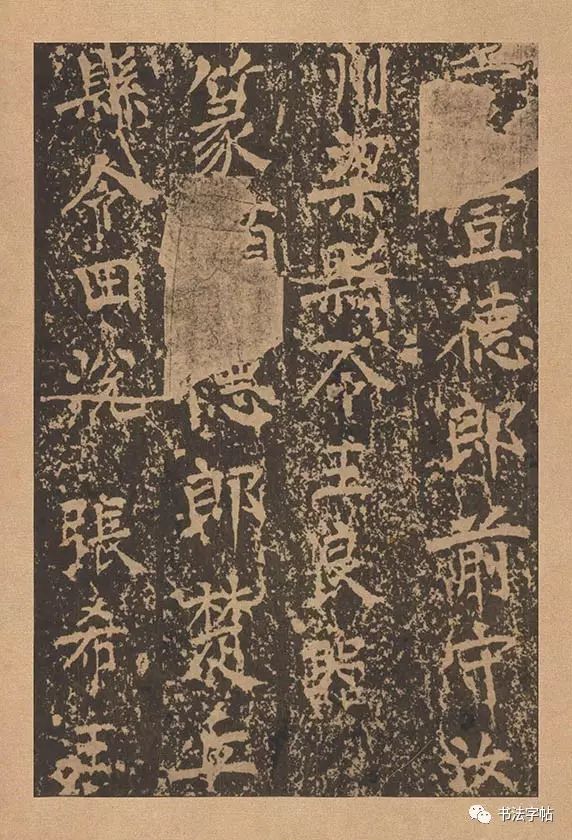 宣德郎前守汝
州梁縣令王良器
篆 德郎楚丘
縣令田 張希
书法字帖